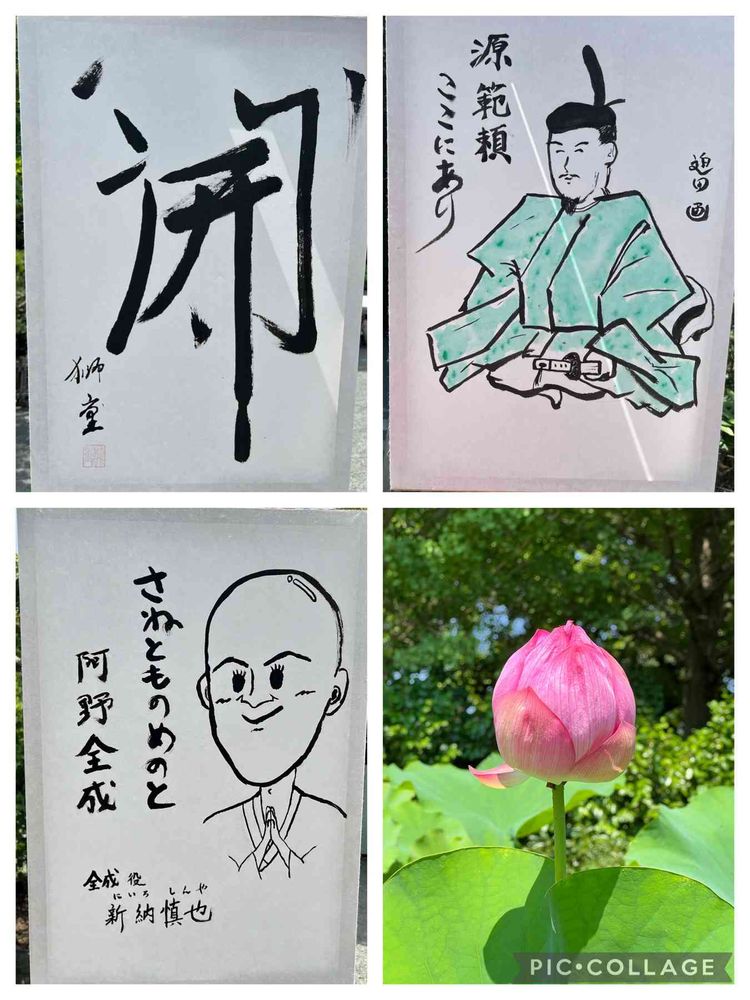 開
獅童
源範頼
ここにあり
迫田画
さねとものめのと
阿野全成
全成役
にいろ しんや
新納慎也
PIC•COLLAGE